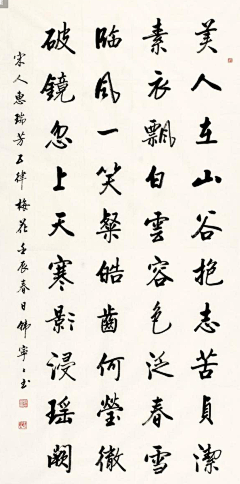 美人在山谷抱志苦貞潔
素衣飄白雲容色泛春雪
臨風一笑粲皓齒何瑩徹
破鏡忽上天寒影浸瑤闕
宋人惠瑞芳五律梅花壬辰春日佛寧之書